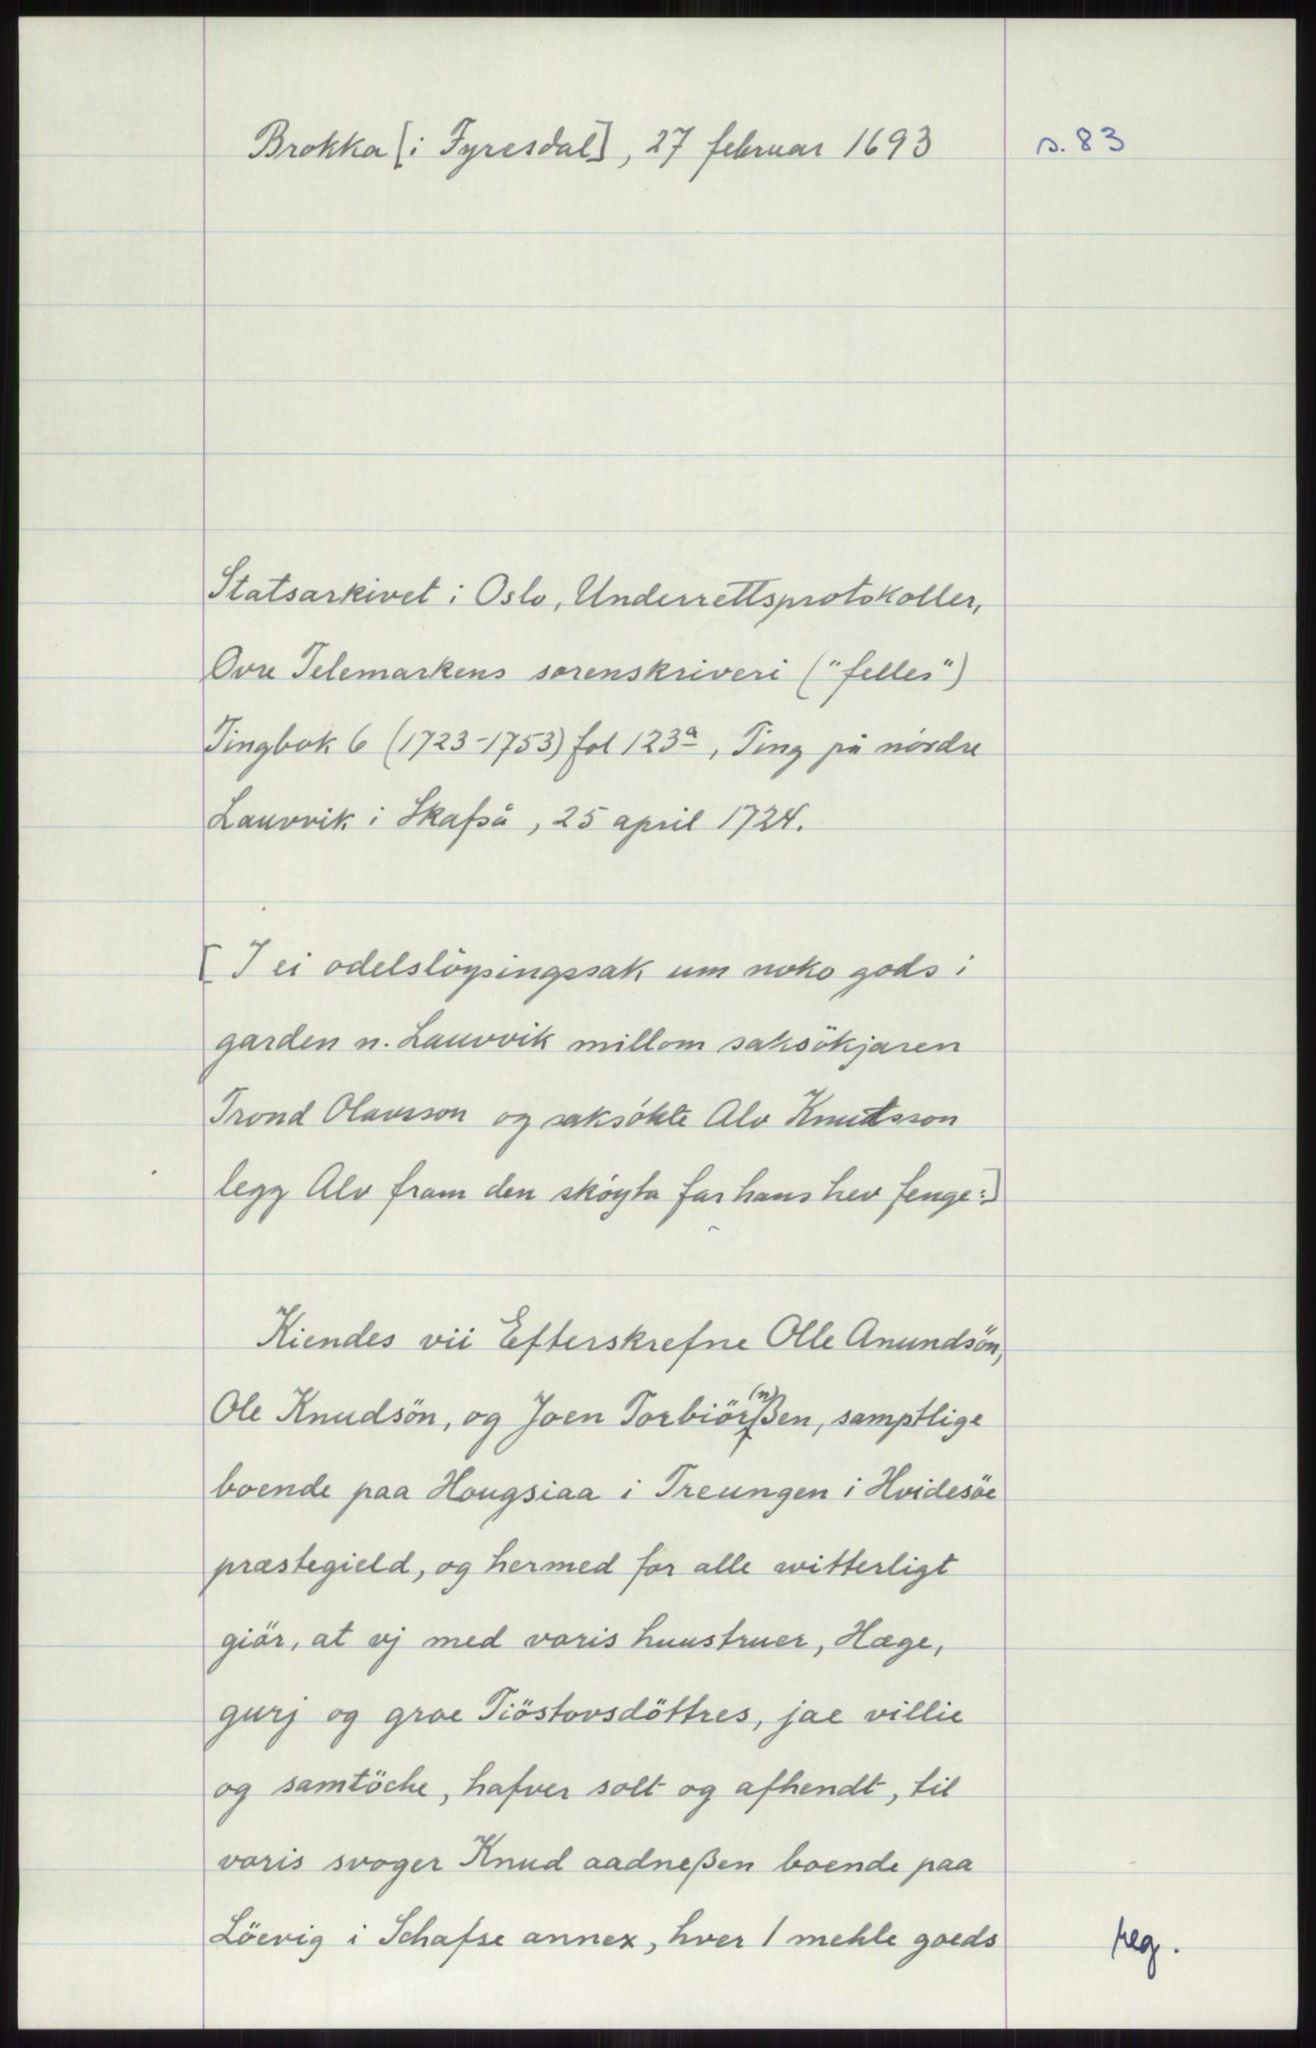 Brokka [i Fyresdal], 27 februar 1693
s. 83
Statsarkivet i Oslo, Underrettsprotokoller,
Øvre Telemarkens sorenskriveri ("felles")
Tingbok 6 (1723-1753) fol 123a, Ting på nórdre
Lauvvik i Skafså, 25 april 1724.
[I ei odelslöysingssak um noko gods i
garden n. Lauvvik millom saksökjaren
Trond Olavsson og saksókte Alv Knutsson
legg Alv fram den skóyta far hans hev fenge:]
Kiendes vii Efterskrefne Olle Anundsön,
Ole Knudsön, og Joen Torbiör(n)ßen, samptlige
boende paa Hougsiaa i Treungen i Hvidesöe
præstegield, og hermed for alle witterligt
giör, at vj med voris huustruer, Hæge,
gurj og groe Tiöstovsdöttres, jae villie
og samtöche, hafver solt og afhendt, til
voris svoger Knud aadneßen boende paa
Löevig i Schafse annex, hver 1 mehle goeds
reg.